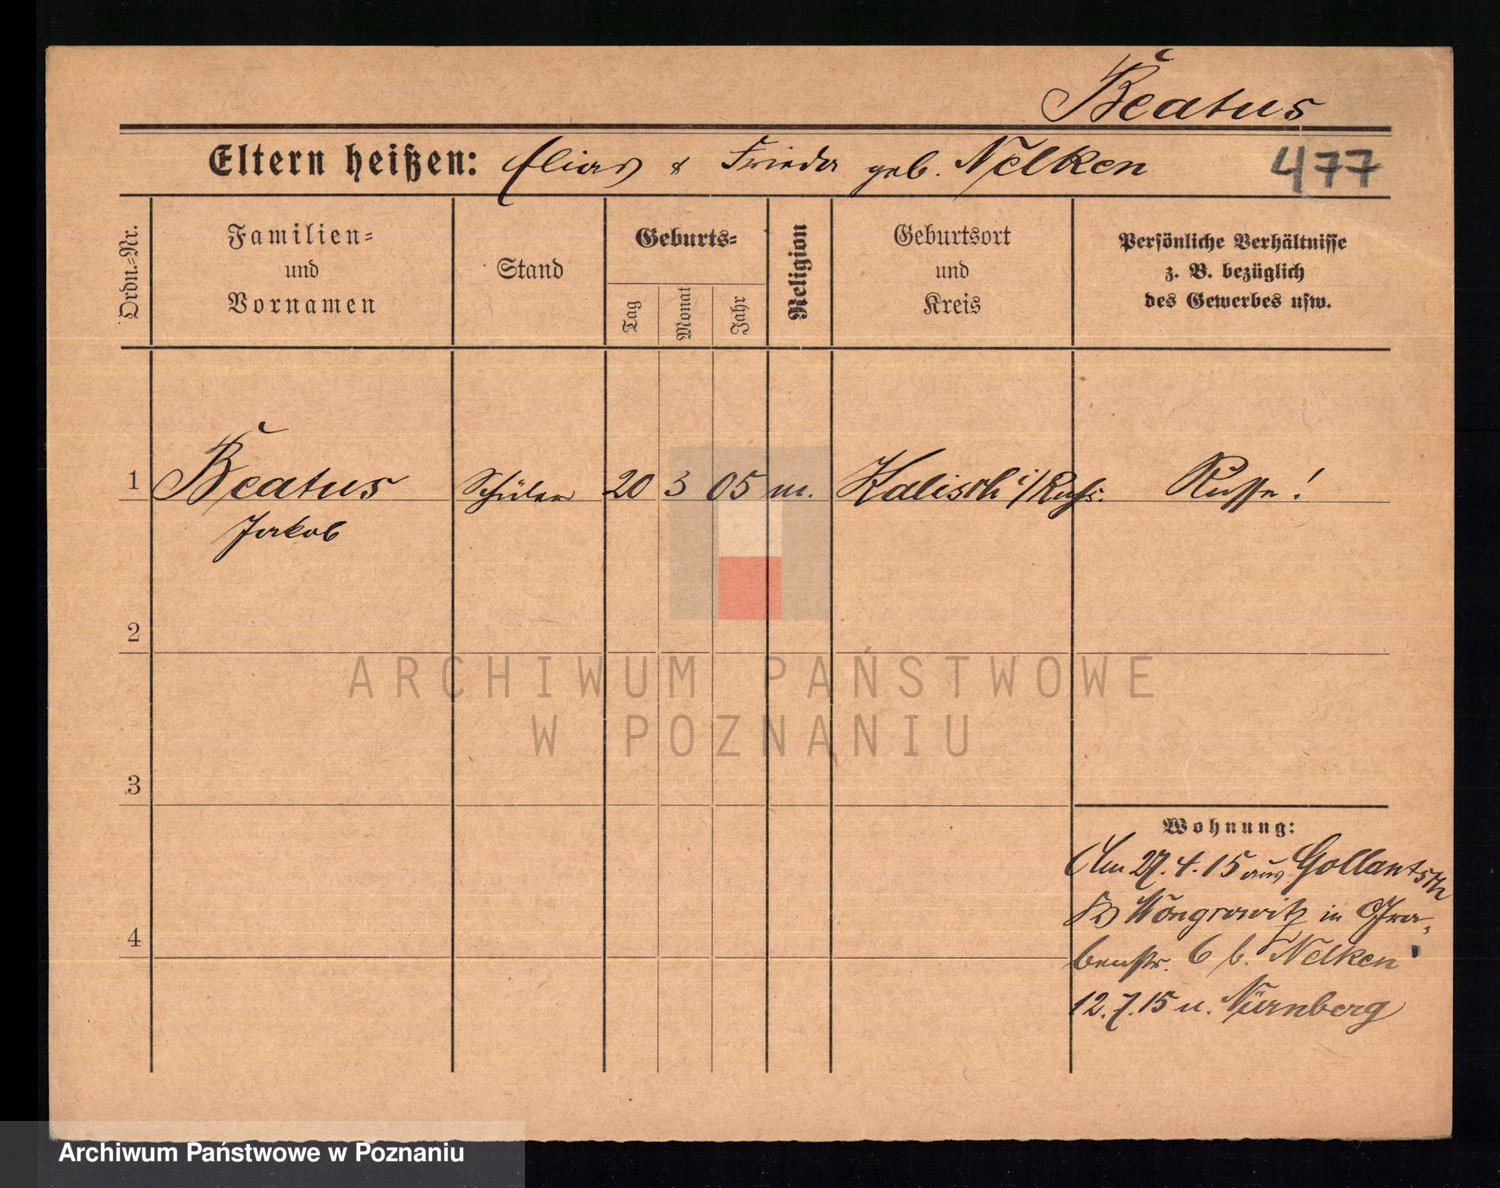 Beatus
Eltern heißen: Elias & Frieda geb. Nelken 477
Ordn.-Nr.
Familien-
und
Vornamen
Stand
Geburts-
Tag
Monat
Jahr
Religion
Geburtsort
und
Kreis
Persönliche Verhältnisse
z. B. bezüglich
des Gewerbes usw.
1 Beatus Schüler 20 3 05 m. Kalisch i/Russ. Russe!
Jakob
2
3
4
Wohnung:
Am 27.4.15 aus Gollantsch
Wongrowitz in Gra-
benstr. 6 b. Nelken
12.7.15 n. Nürnberg
ARCHIWUM PAŃSTWOWE
W POZNANIU
Archiwum Państwowe w Poznaniu